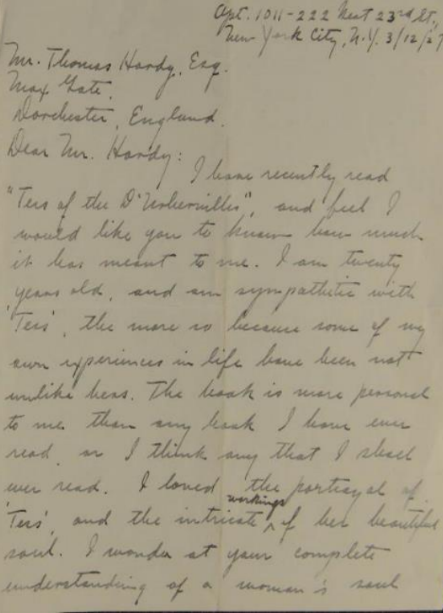 Apt. 1011-222 West 23rd St.,
New York City, N.Y. 3/12/27
Mr. Thomas Hardy, Esq.
Max Gate,
Dorchester, England.
Dear Mr. Hardy:
I have recently read
"Tess of the D'Urbervilles", and feel I
would like you to know how much
it has meant to me. I am twenty
years old, and am sympathetic with
'Tess', the more so because some of my
own experiences in life have been not
unlike hers. The book is more personal
to me than any book I have ever
read, or I think any that I shall
ever read. I loved the portrayal of
'Tess', and the intricate workings of her beautiful
soul. I wonder at your complete
understanding of a woman's soul